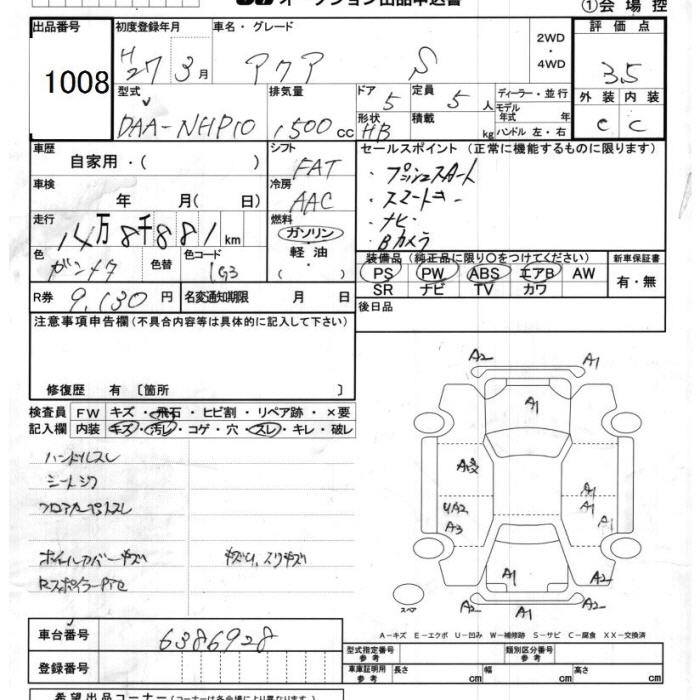 オークション出品申込書
①会場控
出品番号 初度登録年月 車名・グレード 評価点
1008 H27 3月 アクア S 2WD・4WD 3.5
型式 排気量 ドア 定員 ディーラー・並行 外装 内装
DAA-NHP10 1500cc 5 5人 モデル年式 年 C C
形状 HB 積載 kg ハンドル 左・右
車歴 シフト セールスポイント(正常に機能するものに限ります)
自家用・( ) FAT ・プッシュスタート
車検 冷房 ・スマートキー
年 月( 日) AAC ・ナビ
走行 燃料 ・Bカメラ
14万8千881km ガソリン・軽油・
色 色替 色コード 装備品(純正品に限り○をつけてください) 新車保証書
ガンメタ 1G3 PS PW ABS エアB AW 有・無
SR ナビ TV カワ
R券 9,130円 名変通知期限 月 日 後日品
注意事項申告欄(不具合内容等は具体的に記入して下さい)
修復歴 有 〔箇所 〕
検査員 FW キズ・飛石・ヒビ割・リペア跡・×要
記入欄 内装 キズ・汚レ・コゲ・穴・スレ・キレ・破レ
ハンドルスレ
シートシワ
フロアカーペットスレ
ホイルカバーキズ キズU、スリキズ
A2 A1
A1
A1
A1
UA2
A1
A3
A1
A1
A2 A1
スペア
A-キズ E-エクボ U-凹み W-補修跡 S-サビ C-腐食 XX-交換済
車台番号 6386928
登録番号
型式指定番号 参考 類別区分番号 参考
車庫証明用 参考 長さ cm 幅 cm 高さ cm
希望出品コーナー